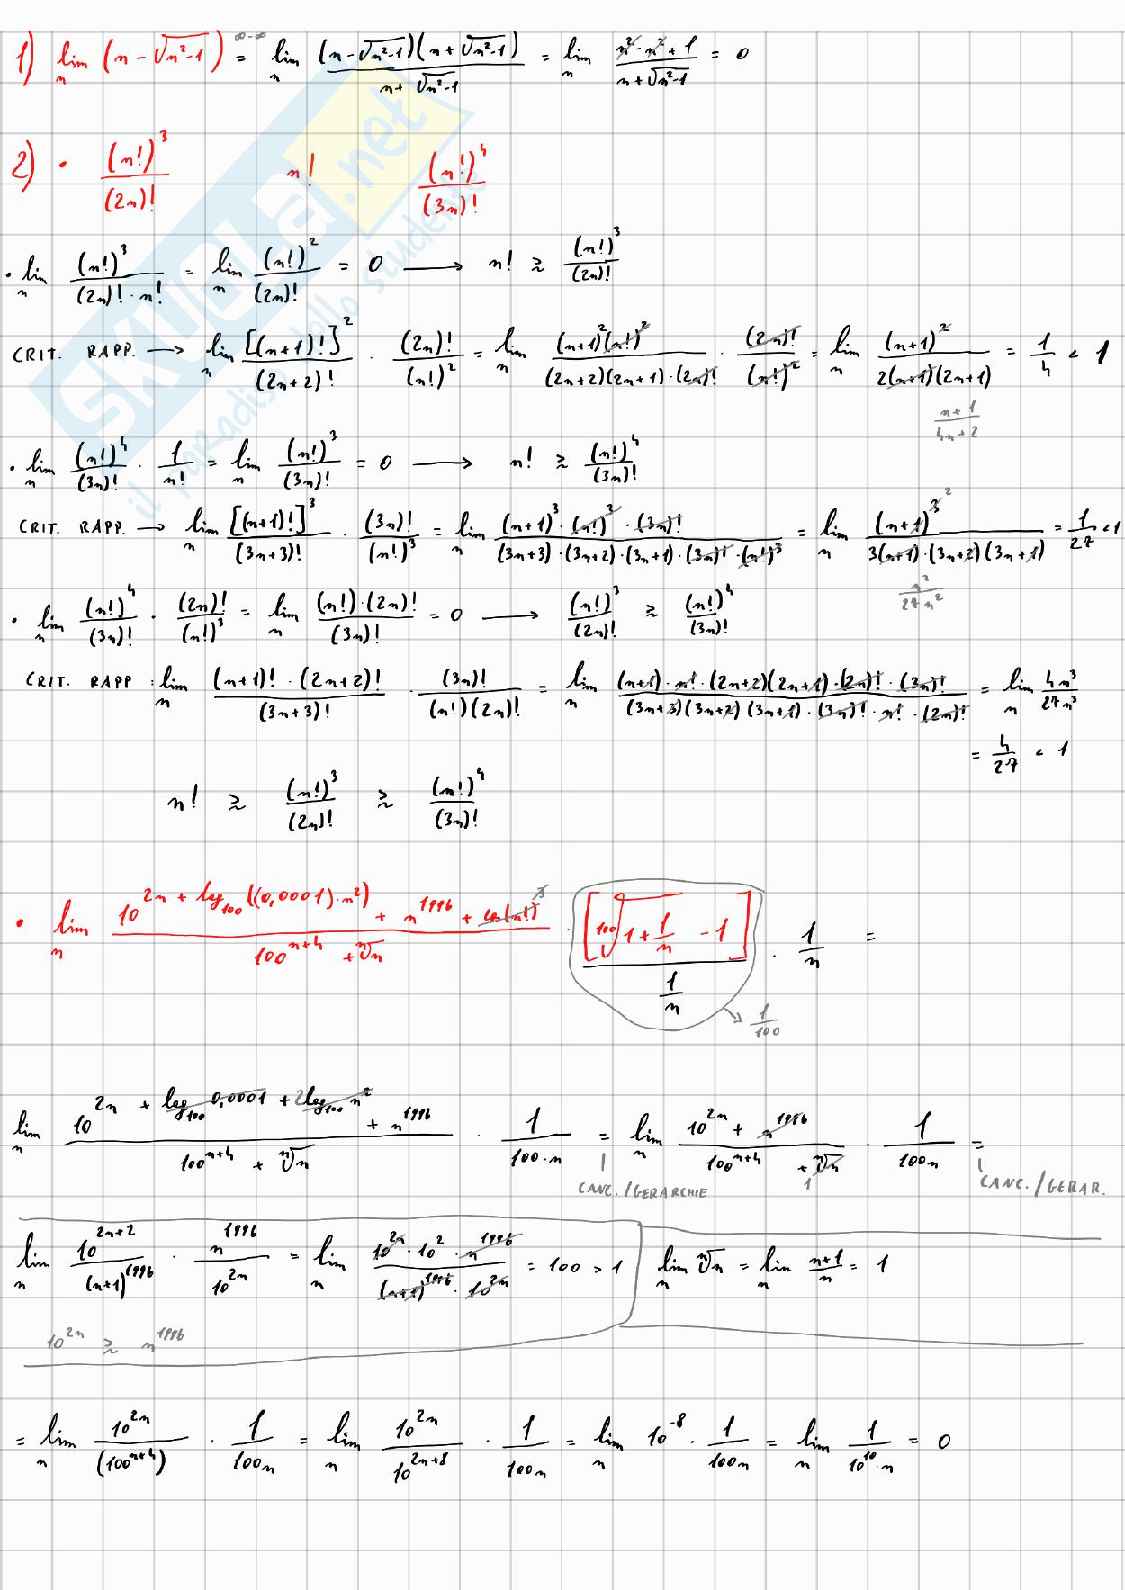 1) lim_n (n - √(n²-1)) =^{∞-∞} lim_n (n-√(n²-1))(n+√(n²-1)) / (n+√(n²-1)) = lim_n (n²-n²+1) / (n+√(n²-1)) = 0
2) • (n!)³/(2n)! n! (n!)⁴/(3n)!
• lim_n (n!)³/((2n)!·n!) = lim_n (n!)²/(2n)! = 0 ⟶ n! ≳ (n!)³/(2n)!
CRIT. RAPP. ⟶ lim_n [(n+1)!]²/(2n+2)! · (2n)!/(n!)² = lim_n (n+1)²(n!)²/((2n+2)(2n+1)·(2n)!) · (2n)!/(n!)² = lim_n (n+1)²/(2(n+1)(2n+1)) = 1/4 < 1
(n+1)/(4n+2)
• lim_n (n!)⁴/(3n)! · 1/n! = lim_n (n!)³/(3n)! = 0 ⟶ n! ≳ (n!)⁴/(3n)!
CRIT. RAPP. ⟶ lim_n [(n+1)!]³/(3n+3)! · (3n)!/(n!)³ = lim_n (n+1)³·(n!)³·(3n)!/((3n+3)·(3n+2)·(3n+1)·(3n)!·(n!)³) = lim_n (n+1)³ ²/(3(n+1)·(3n+2)(3n+1)) = 1/27 < 1
n²/27n²
• lim_n (n!)⁴/(3n)! · (2n)!/(n!)³ = lim_n (n!)·(2n)!/(3n)! = 0 ⟶ (n!)³/(2n)! ≳ (n!)⁴/(3n)!
CRIT. RAPP : lim_n (n+1)!·(2n+2)!/(3n+3)! · (3n)!/((n!)(2n)!) = lim_n (n+1)·n!·(2n+2)(2n+1)·(2n)!·(3n)!/((3n+3)(3n+2)(3n+1)·(3n)!·n!·(2n)!) = lim_n 4n³/27n³
= 4/27 < 1
n! ≳ (n!)³/(2n)! ≳ (n!)⁴/(3n)!
• lim_n (10^{2n + log₁₀₀((0,0001)·n²)} + n^{1996} + cos(n!)³)/(100^{n+4} + ⁿ√n) · [¹⁰⁰√(1+1/n) - 1]/(1/n) · 1/n =
1/100
lim_n (10^{2n + log₁₀₀ 0,0001 + 2log₁₀₀ n²} + n^{1996})/(100^{n+4} + ⁿ√n) · 1/(100·n) = lim_n (10^{2n} + n^{1996})/(100^{n+4} + ⁿ√n) · 1/(100n) =
CANC./GERARCHIE 1 CANC./GERAR.
lim_n 10^{2n+2}/(n+1)^{1996} · n^{1996}/10^{2n} = lim_n 10^{2n}·10²·n^{1996}/((n+1)^{1996}·10^{2n}) = 100 > 1 lim_n ⁿ√n = lim_n (n+1)/n = 1
10^{2n} ≳ n^{1996}
= lim_n 10^{2n}/(100^{n+4}) · 1/(100n) = lim_n 10^{2n}/10^{2n+8} · 1/(100n) = lim_n 10^{-8} · 1/(100n) = lim_n 1/(10^{10}·n) = 0
SKUOLA.net
il paradiso dello studente